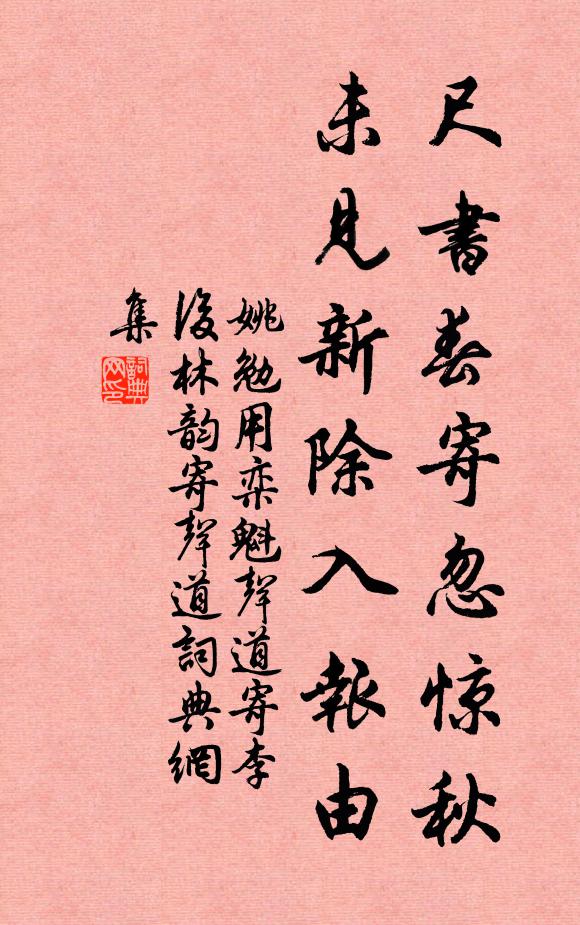 尺書春寄忽惊秋
未見新除入報由
姚勉用栾魁聲道寄李
後林韵寄聲道詞典網
集
詞典
网印